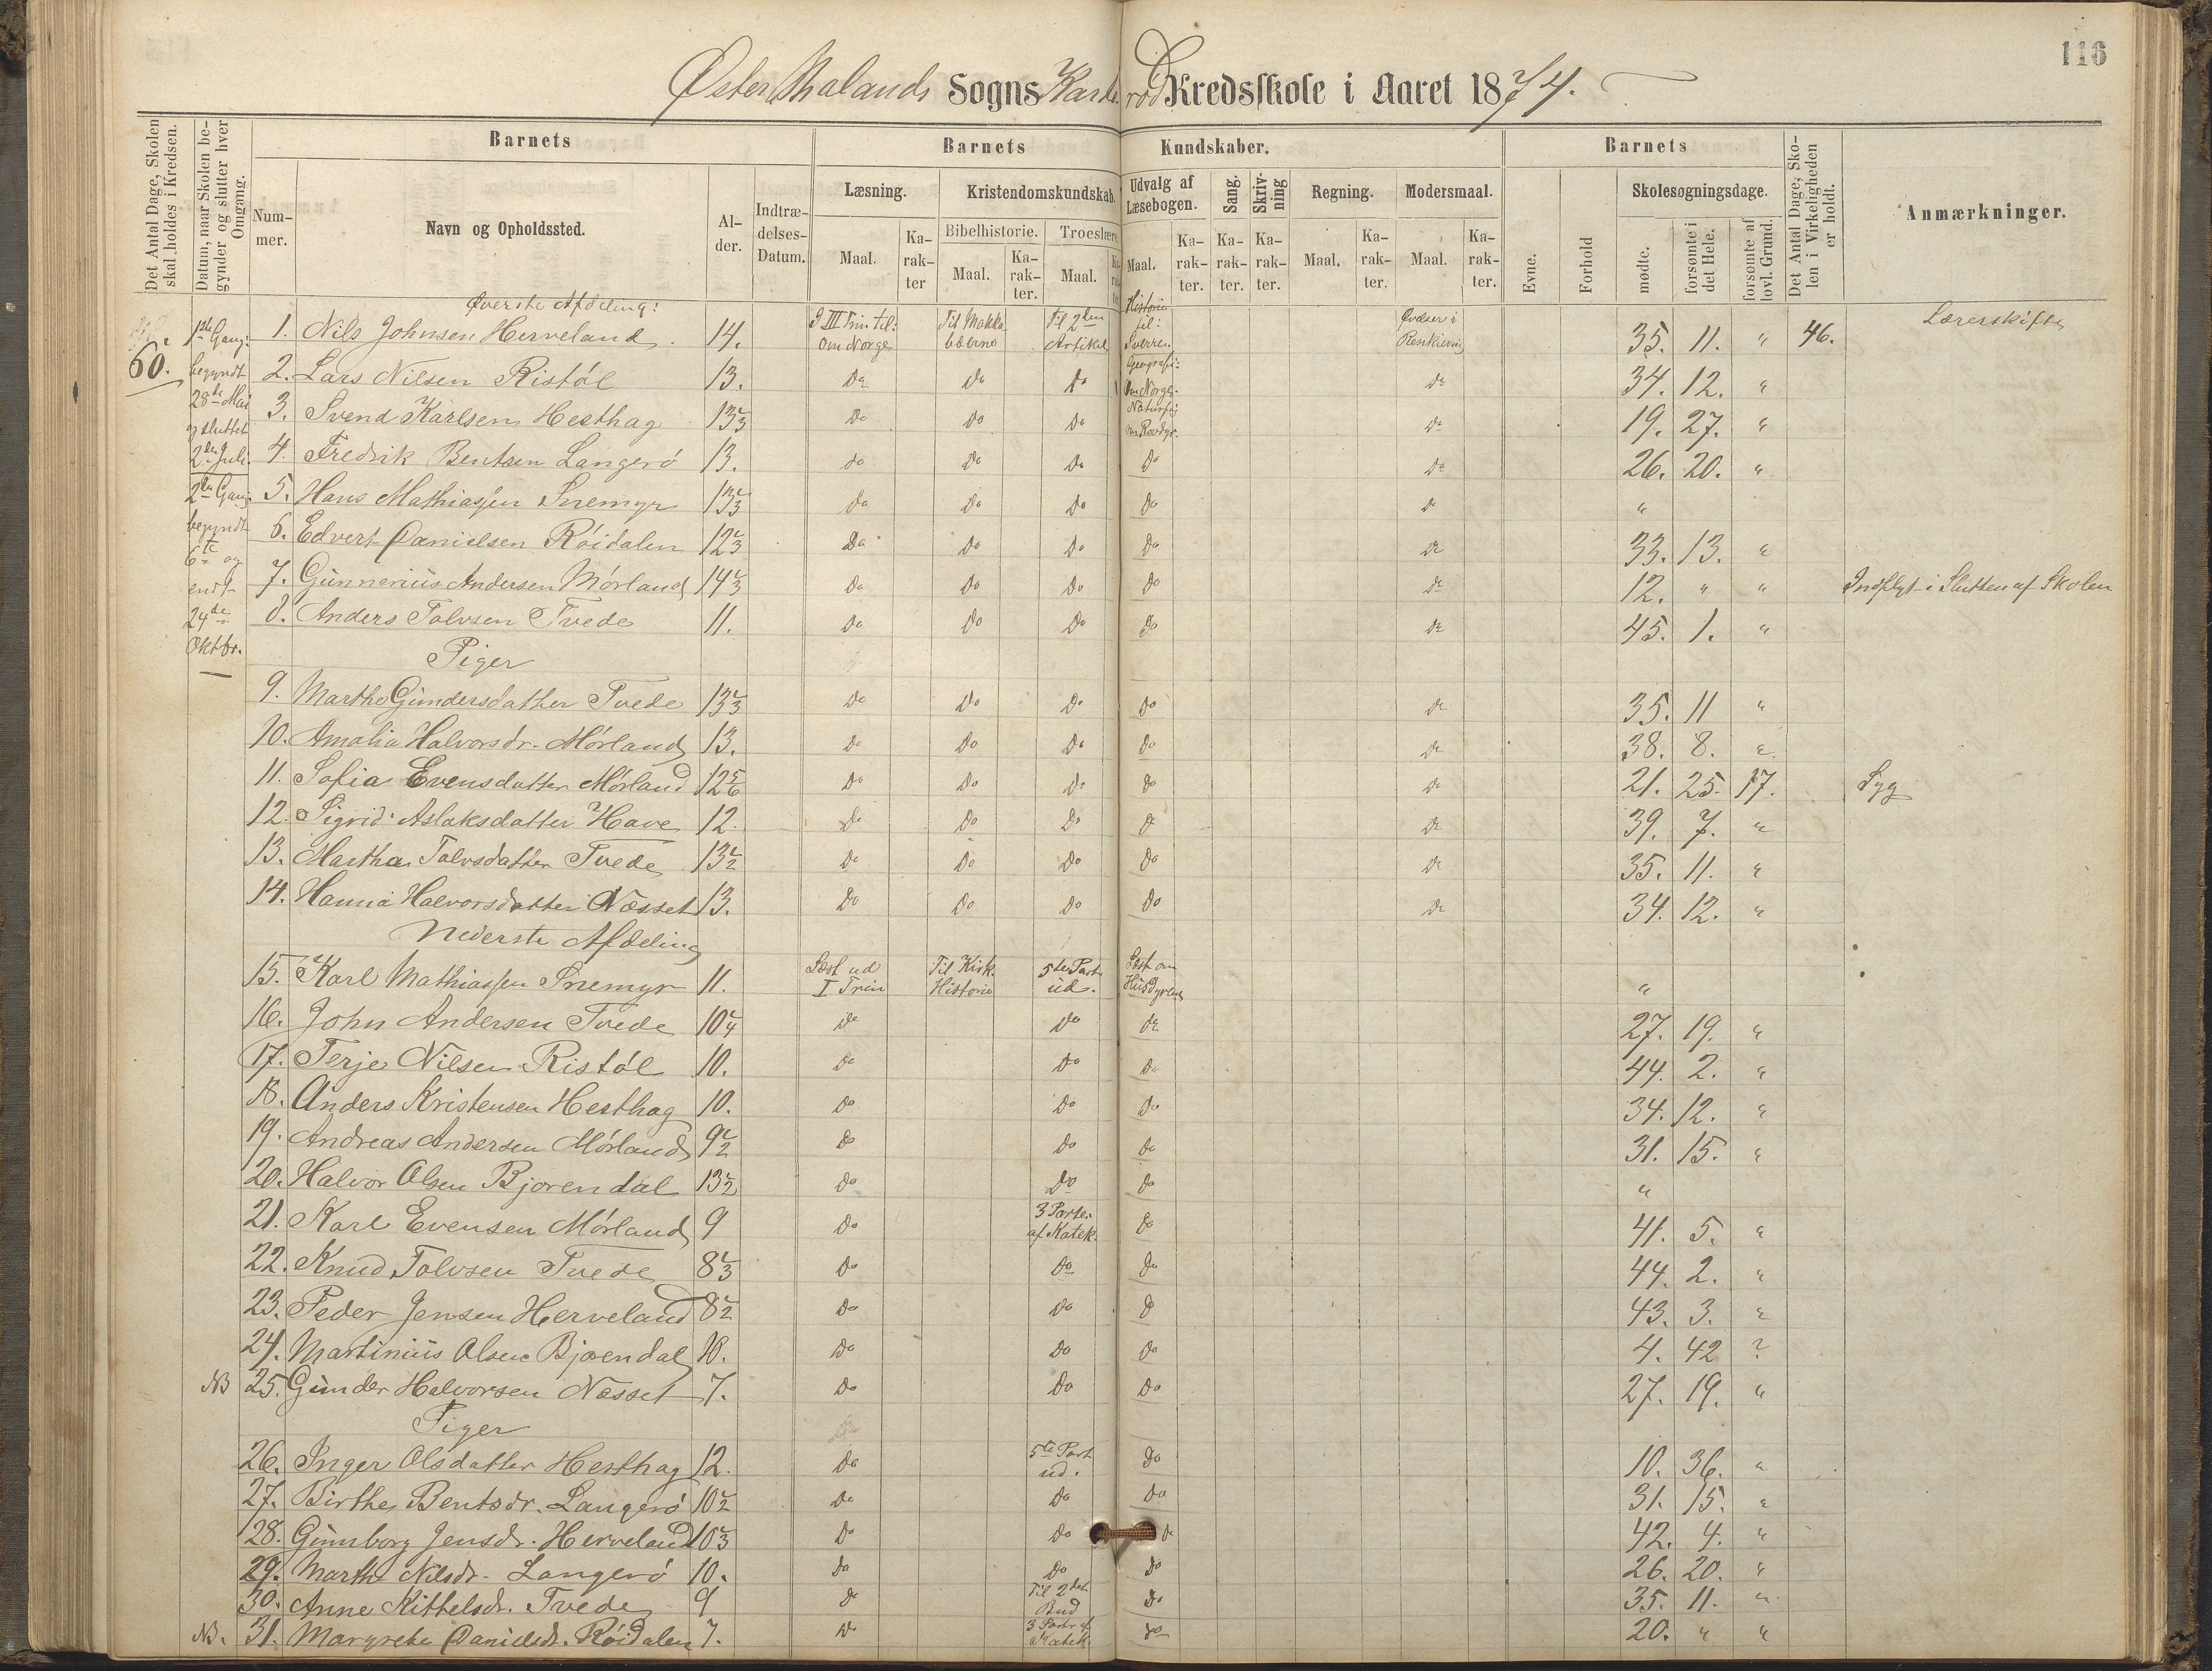 116
Øster Malands Sogns Karterød Kredsskole i Aaret 1874.
Det Antal Dage, Skolen skal holdes i Kredsen.
Datum, naar Skolen begynder og slutter hver Omgang.
Barnets
Barnets Kundskaber.
Barnets
Det Antal Dage, Skolen i Virkeligheden er holdt.
Anmærkninger.
Nummer.
Navn og Opholdssted.
Alder.
Indtrædelses-Datum.
Læsning.
Kristendomskundskab.
Udvalg af Læsebogen.
Sang.
Skrivning
Regning.
Modersmaal.
Evne.
Forhold
Skolesøgningsdage.
Bibelhistorie.
Troeslære.
Maal.
Karakter
Maal.
Karakter.
Maal.
Maal.
Karakter.
Karakter.
Karakter.
Maal.
Karakter.
Maal.
Karakter.
mødte.
forsømte i det Hele.
forsømte af lovl. Grund.
60.
1ste Gang: begyndt 28de Mai og sluttet 2den Juli.
2den Gang begyndt 6te og endt 24de Oktbr.
Øverste Afdeling:
1. Nils Johnsen Herveland. 14. I III Trin til: om Norge Til Makkabæerne Til 2den Artikel Historie til: Sverre. Øvelser i 35. 11. " 46. Lærerskifte
2. Lars Nilsen Ristöl 13. Do Do Do Geografi: Om Norge. Do 34. 12. "
3. Svend Karlsen Hesthag 13 2/3 Do Do Do Naturh: om Rovdyr. Do 19. 27. "
4. Fredrik Bentsen Langerö 13. Do Do Do Do Do 26. 20. "
5. Hans Mathiassen Snemyr 13 2/3 Do Do Do Do Do "
6. Edvert Danielsen Röidalen 12 2/3 Do Do Do Do Do 33. 13. "
7. Gunnerius Andersen Mörland 14 2/3 Do Do Do Do Do 12. " " Indflyt i Slutten af Skolen
8. Anders Tolvsen Tvede 11. Do Do Do Do Do 45. 1. "
Piger
9. Marthe Gundersdatter Tvede 13 2/3 Do Do Do Do Do 35. 11 "
10. Amalia Halvorsdr. Mörland 13. Do Do Do Do Do 38. 8. "
11. Sofia Evensdatter Mörland 12 5/6 Do Do Do Do Do 21. 25. 17. Syg
12. Sigrid Aslaksdatter Have 12. Do Do Do Do Do 39. 7. "
13. Martha Tolvsdatter Tvede 13 1/2 Do Do Do Do Do 35. 11. "
14. Hanna Halvorsdatter Næsset 13. Do Do Do Do Do 34. 12. "
Nederste Afdeling
15. Karl Mathiassen Snemyr 11. Læst ud I Trin Til Kirk. Historie 5te Part ud. Læst om Husdyrene "
16. John Andersen Tvede 10 1/4 Do Do Do 27. 19. "
17. Terje Nilsen Ristöl 10. Do Do Do 44. 2. "
18. Anders Kristensen Hesthag 10. Do Do Do 34. 12. "
19. Andreas Andersen Mörland 9 1/2 Do Do Do 31. 15. "
20. Halvor Olsen Bjorendal 13 1/2 Do Do Do "
21. Karl Evensen Mörland 9 Do 3 Parter af Katek. Do 41. 5. "
22. Knud Tolvsen Tvede 8 2/3 Do Do Do 44. 2. "
23. Peder Jensen Herveland 8 1/2 Do Do Do 43. 3. "
24. Martinius Olsen Bjorendal 10. Do Do Do 4. 42 ?
NB 25. Gunder Halvorsen Næsset 7. Do Do Do 27. 19. "
Piger
26. Inger Olsdatter Hesthag 12. Do 5te Part ud. Do 10. 36. "
27. Birthe Bentsdr. Langerö 10 1/2 Do Do Do 31. 15. "
28. Gunborg Jensdr. Herveland 10 2/3 Do Do Do 42. 4. "
29. Marthe Nilsdr. Langerö 10. Do Do Do 26. 20. "
30. Anne Kittelsdr. Tvede 9 Do Til 2det Bud Do 35. 11. "
NB. 31. Margrete Danielsdr. Röidalen 7. Do 3 Parter af Katek. Do 20. " "